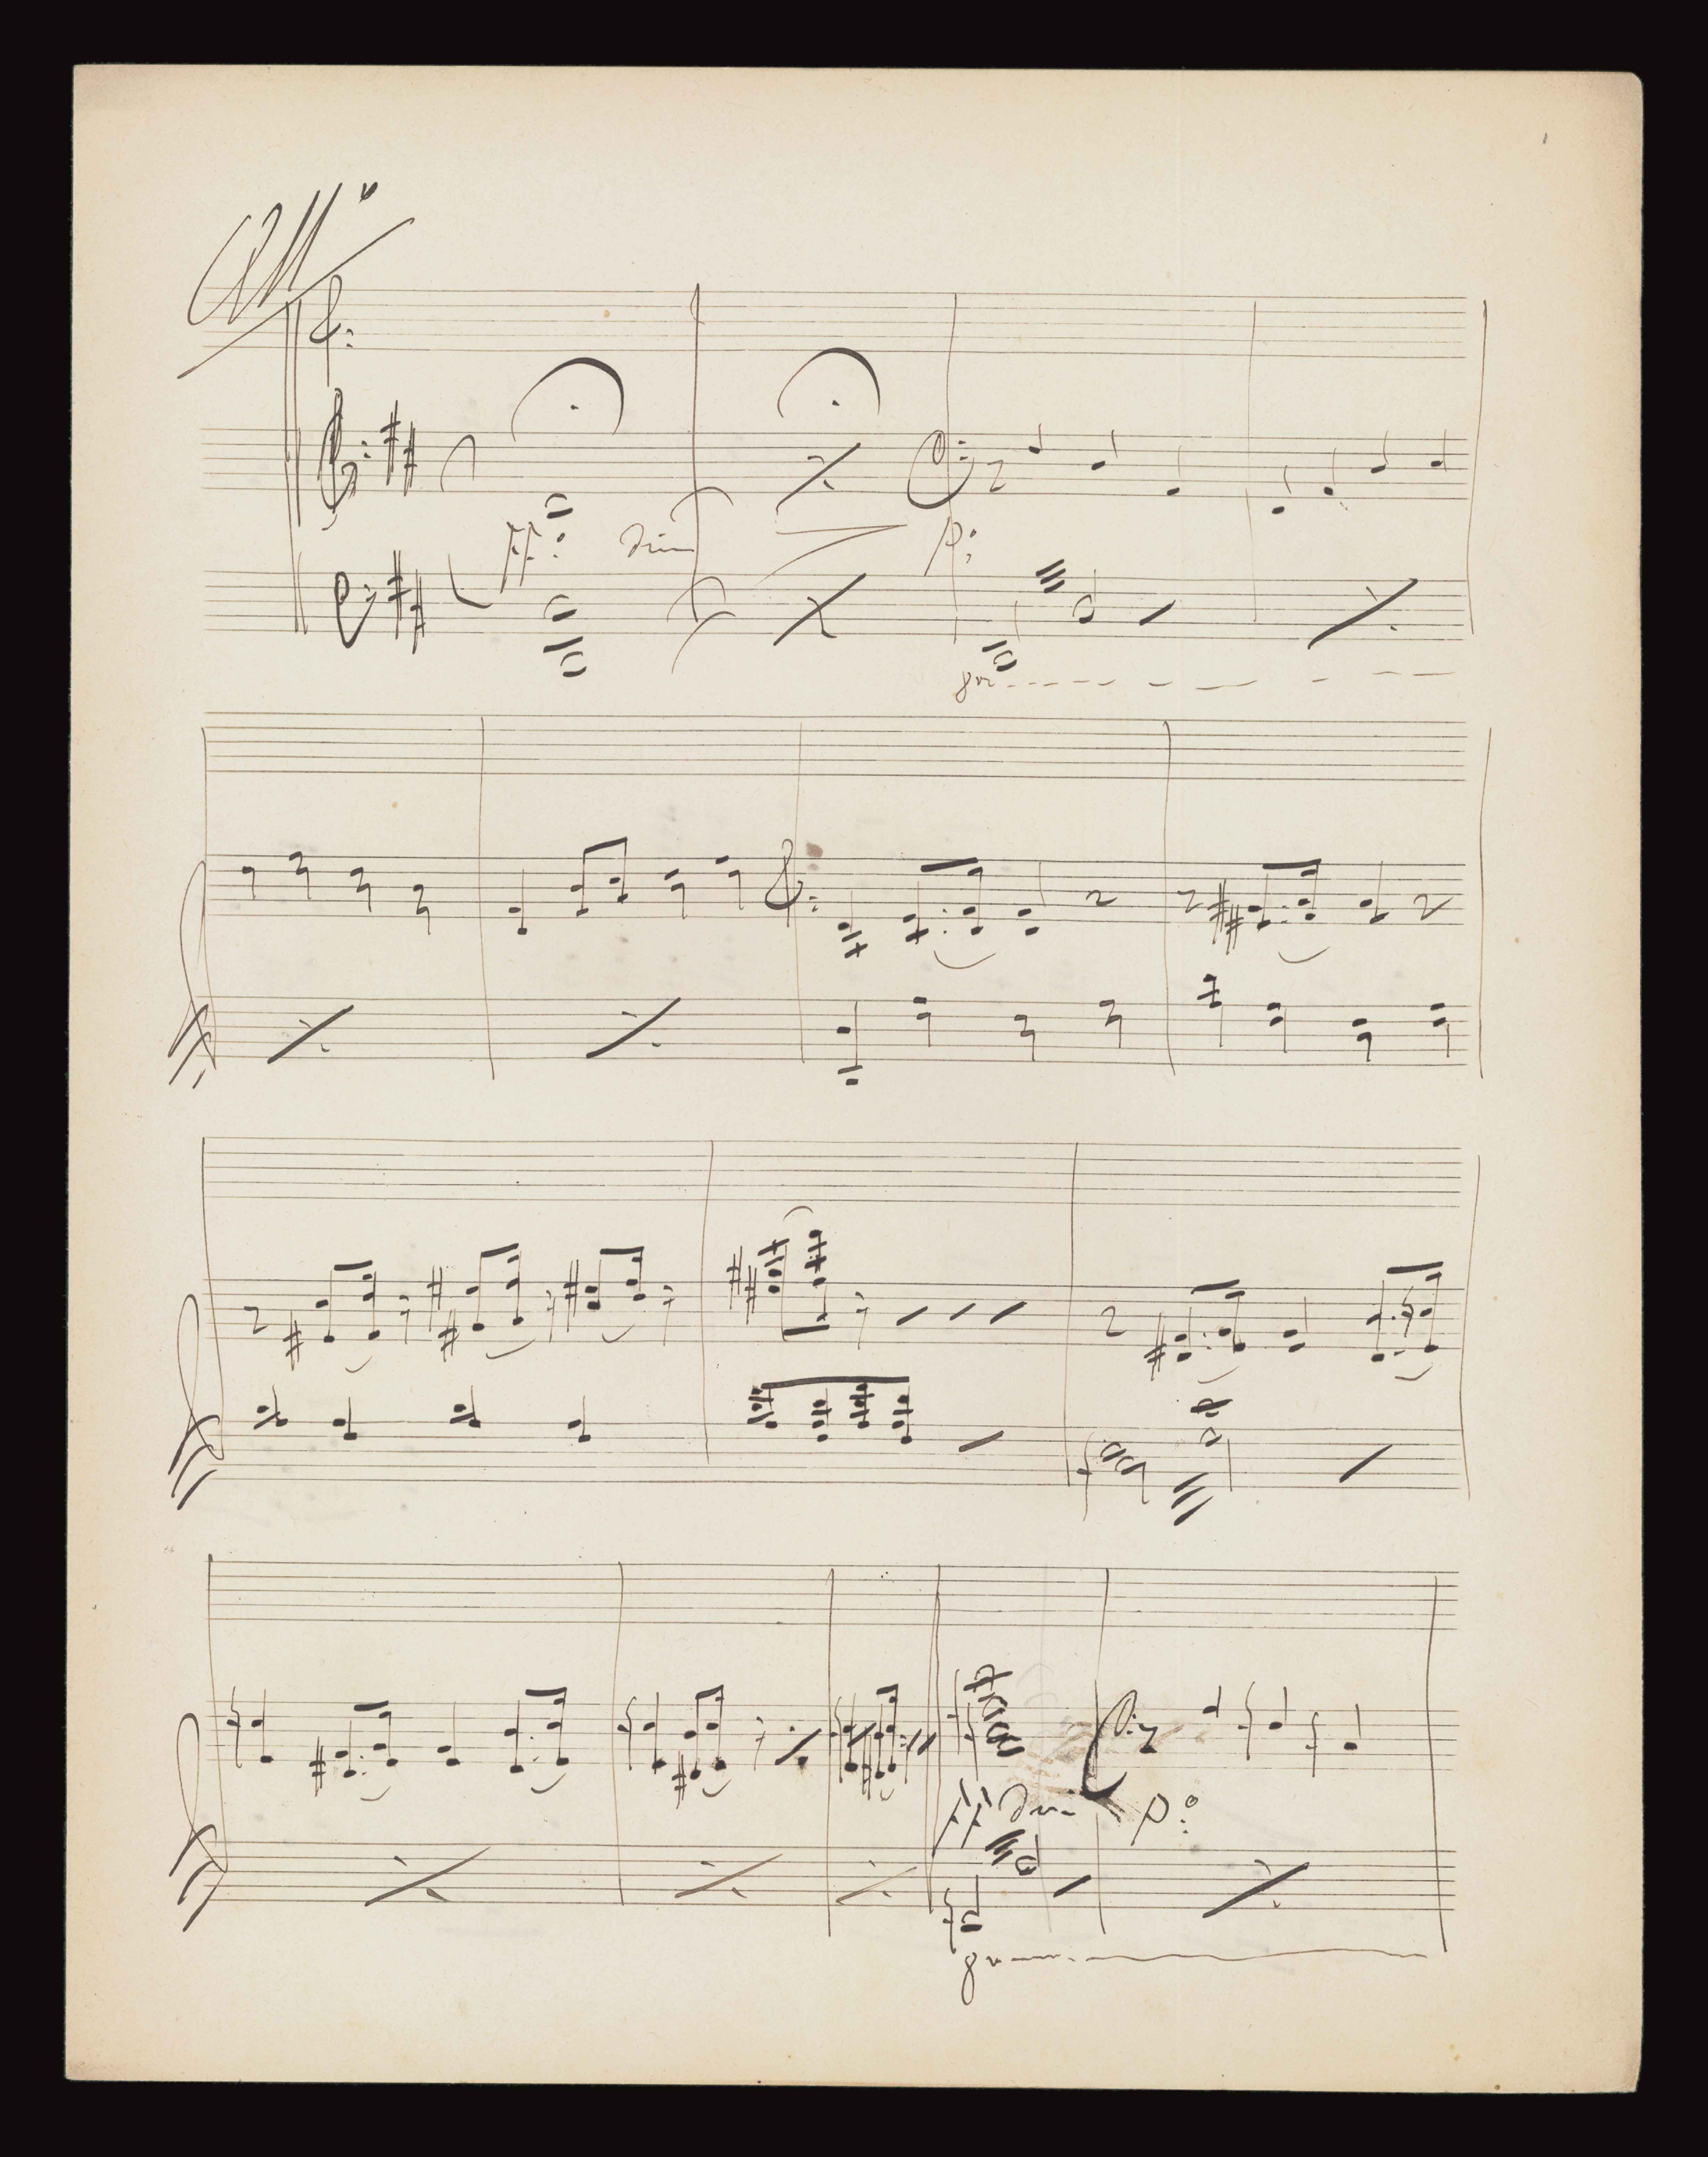 All°
ff: dim p:
8va
ff dim p:
8va